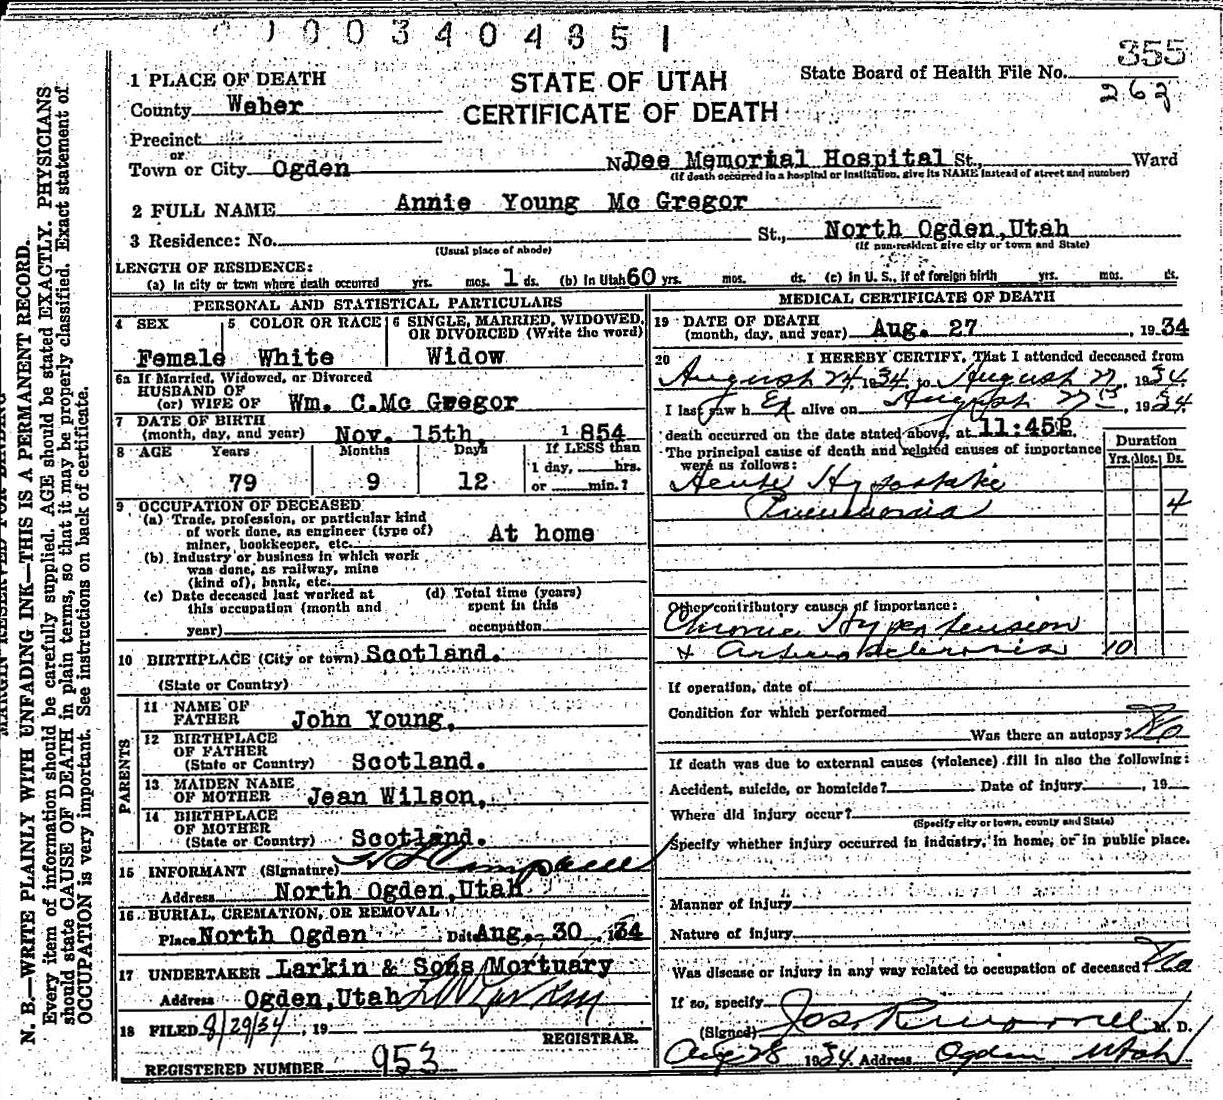 0 0 3 4 0 4 8 5 1
355
262
STATE OF UTAH
CERTIFICATE OF DEATH
State Board of Health File No.
1 PLACE OF DEATH
County Weber
Precinct
or
Town or City Ogden No Dee Memorial Hospital St., Ward
(If death occurred in a hospital or institution, give its NAME instead of street and number)
2 FULL NAME Annie Young Mc Gregor
3 Residence: No. St., North Ogden, Utah
(Usual place of abode) (If non-resident give city or town and State)
LENGTH OF RESIDENCE:
(a) In city or town where death occurred yrs. mos. 1 ds. (b) In Utah 60 yrs. mos. ds. (c) In U. S., if of foreign birth yrs. mos. ds.
PERSONAL AND STATISTICAL PARTICULARS
4 SEX Female
5 COLOR OR RACE White
6 SINGLE, MARRIED, WIDOWED, OR DIVORCED (Write the word)
Widow
6a If Married, Widowed, or Divorced
HUSBAND OF
(or) WIFE OF Wm. C. Mc Gregor
7 DATE OF BIRTH
(month, day, and year) Nov. 15th, 1854
8 AGE Years Months Days If LESS than
1 day, hrs.
79 9 12 or min.?
9 OCCUPATION OF DECEASED
(a) Trade, profession, or particular kind
of work done, as engineer (type of)
miner, bookkeeper, etc. At home
(b) Industry or business in which work
was done, as railway, mine
(kind of), bank, etc.
(c) Date deceased last worked at
this occupation (month and
year)
(d) Total time (years)
spent in this
occupation
10 BIRTHPLACE (City or town) Scotland.
(State or Country)
PARENTS
11 NAME OF
FATHER John Young.
12 BIRTHPLACE
OF FATHER
(State or Country) Scotland.
13 MAIDEN NAME
OF MOTHER Jean Wilson.
14 BIRTHPLACE
OF MOTHER
(State or Country) Scotland.
15 INFORMANT (Signature) Campbell
Address North Ogden, Utah
16 BURIAL, CREMATION, OR REMOVAL
Place North Ogden Date Aug. 30, 1934
17 UNDERTAKER Larkin & Sons Mortuary
Address Ogden, Utah
18 FILED 8/29/34, 19
REGISTRAR.
REGISTERED NUMBER 953
MEDICAL CERTIFICATE OF DEATH
19 DATE OF DEATH
(month, day, and year) Aug. 27, 1934
20 I HEREBY CERTIFY, That I attended deceased from
August 24 1934 to August 27, 1934
I last saw h Er alive on August 27th, 1934
death occurred on the date stated above, at 11:45P.m.
The principal cause of death and related causes of importance
were as follows:
Duration
Yrs. Mos. Ds.
Acute Hypostatic
Pneumonia 4
Other contributory causes of importance:
Chronic Hypertension
+ Arteriosclerosis 10
If operation, date of
Condition for which performed
Was there an autopsy? No
If death was due to external causes (violence) fill in also the following:
Accident, suicide, or homicide? Date of injury, 19
Where did injury occur?
(Specify city or town, county and State)
Specify whether injury occurred in industry, in home, or in public place.
Manner of injury
Nature of injury
Was disease or injury in any way related to occupation of deceased? No
If so, specify
(Signed) Jos. R. Morrell M. D.
Aug 28 1934 Address Ogden Utah
N. B.—WRITE PLAINLY WITH UNFADING INK—THIS IS A PERMANENT RECORD.
Every item of information should be carefully supplied. AGE should be stated EXACTLY. PHYSICIANS
should state CAUSE OF DEATH in plain terms, so that it may be properly classified. Exact statement of
OCCUPATION is very important. See instructions on back of certificate.